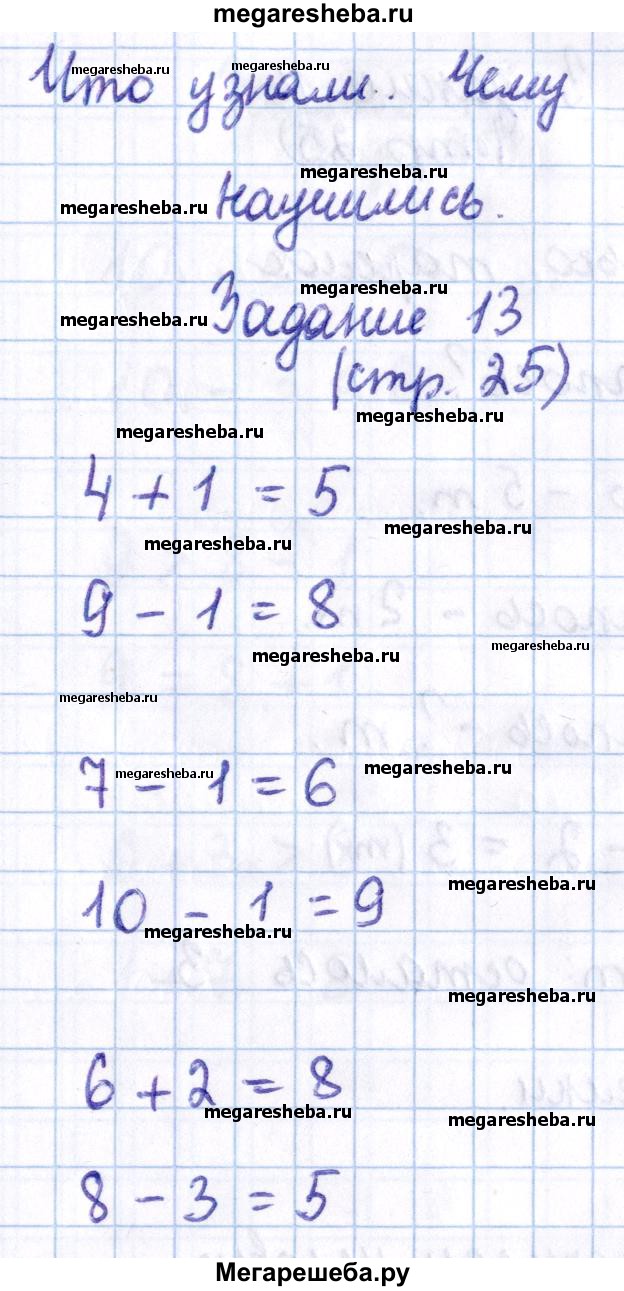 megaresheba.ru
Что узнали. Чему
megaresheba.ru megaresheba.ru
megaresheba.ru
megaresheba.ru научились.
megaresheba.ru
megaresheba.ru Задание 13
(стр. 25)
megaresheba.ru
megaresheba.ru
4 + 1 = 5
megaresheba.ru
megaresheba.ru
9 - 1 = 8
megaresheba.ru
megaresheba.ru
megaresheba.ru
7 - 1 = 6
megaresheba.ru megaresheba.ru
10 - 1 = 9
megaresheba.ru
megaresheba.ru
megaresheba.ru
6 + 2 = 8
megaresheba.ru
megaresheba.ru
8 - 3 = 5
Мегарешеба.ру